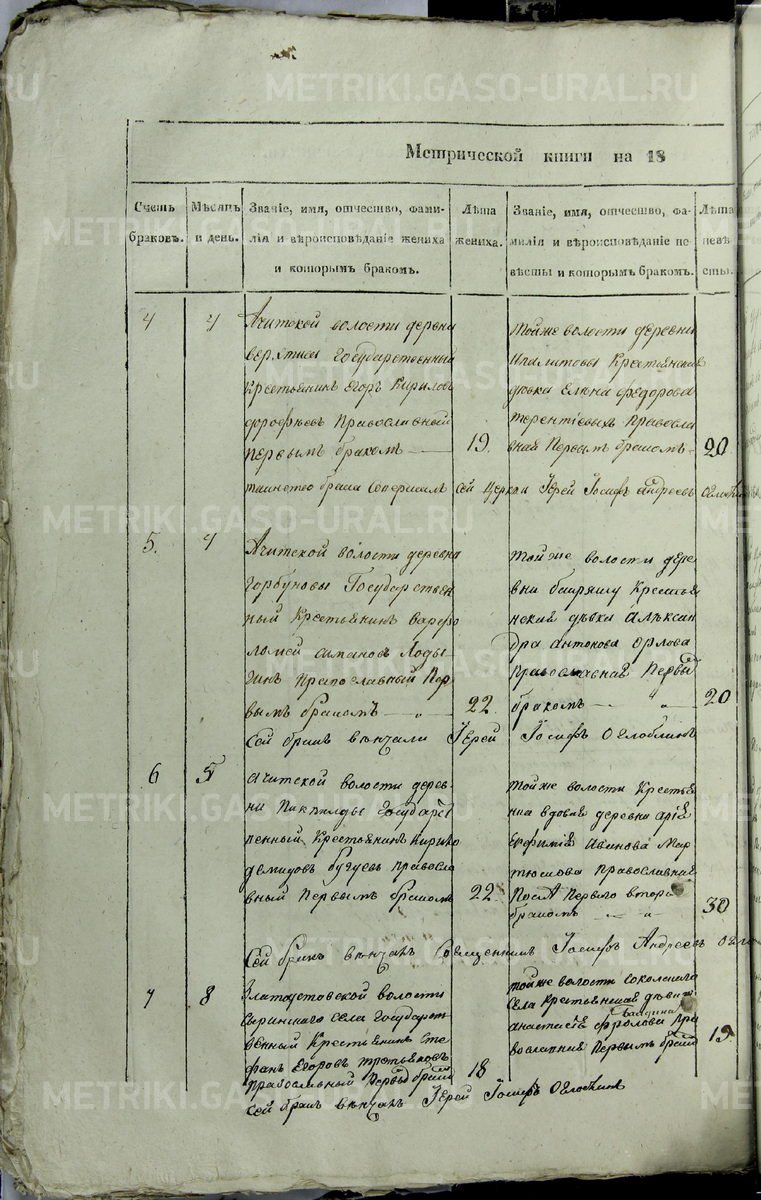 Метрической книги на 18
Счетъ браковъ.
Мѣсяцъ и день.
Званіе, имя, отчество, фами-
лія и вѣроисповѣданіе жениха
и которымъ бракомъ.
Лѣта
жениха.
Званіе, имя, отчество, фа-
милія и вѣроисповѣданіе не
вѣсты и которымъ бракомъ.
Лѣта
невѣ
сты.
4
4
Ачитской волости деревни
Государственный
Крестьянинъ Егоръ Кириловъ
дорофѣевъ Православный
первымъ бракомъ
19.
тойже волости деревни
Крестьянская
дѣвка Елена федорова
терентіевыхъ Правосла
вная Первымъ бракомъ
20
таинство брака совершалъ сей Церкви Іерей Іосифъ андреевъ Оглоблинъ
5.
4
Ачитской волости деревни
горбуновы Государствен
ный Крестьянинъ варфо
ломей симановъ Лоды
гинъ Православный Пер
вымъ бракомъ
22.
той же волости дере
вни Крестья
нская дѣвка Алѣксан
дра антонова Орлова
Православная Первы
бракомъ
20
Сей бракъ вѣнчали Іерей Іосифъ Оглоблинъ
6
5
ачитской волости дерев-
ни Государст
венный Крестьянинъ
демидовъ Православ
ный Первымъ бракомъ
22.
той же волости Кресть
нка вдова деревни
Ефимія Иванова Мар
тюшова Православная
Послѣ Перваго вторы
бракомъ
30
Сей бракъ вѣнчалъ Священникъ Іосифъ Андреевъ
7
8
Златоустовской волости
села Государст
венный Крестьянинъ Сте
фанъ Егоровъ третьяковъ
Православный Первы бракъ
18
тойже волости
села Крестьянская дѣвка
анастасія фролова Пра
вославная Первымъ бракъ
19.
сей бракъ вѣнчалъ Іерей Іосифъ Оглоблинъ
METRIKI.GASO-URAL.RU